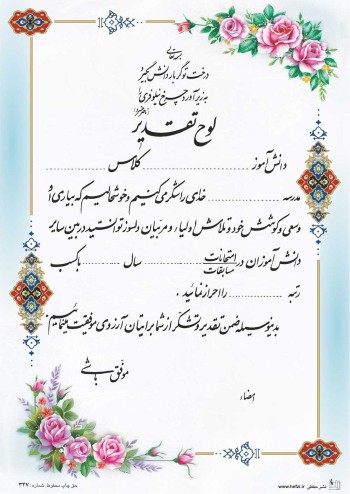 بسمه تعالی
درخت تو گر بار دانش بگیرد
به زیر آوری چرخ نیلوفری را
(ناصرخسرو)
لوح تقدیر
دانش آموز ........ کلاس ........
مدرسه ........ خدای را شکر می‌کنیم و خوشحالیم که به یاری او
و سعی و کوشش خود و تلاش اولیاء و مربیان دلسوز توانستید در بین سایر
دانش آموزان در امتحانات مسابقات ........ سال ........ با کسب
رتبه ........ را احراز نمائید .
بدینوسیله ضمن تقدیر و تشکر از شما برایتان آرزوی موفقیت می‌نمائیم.
موفق باشی
امضاء
حق چاپ محفوظ. شماره: ۳۲۷
نشر حافظی www.hefzi.ir